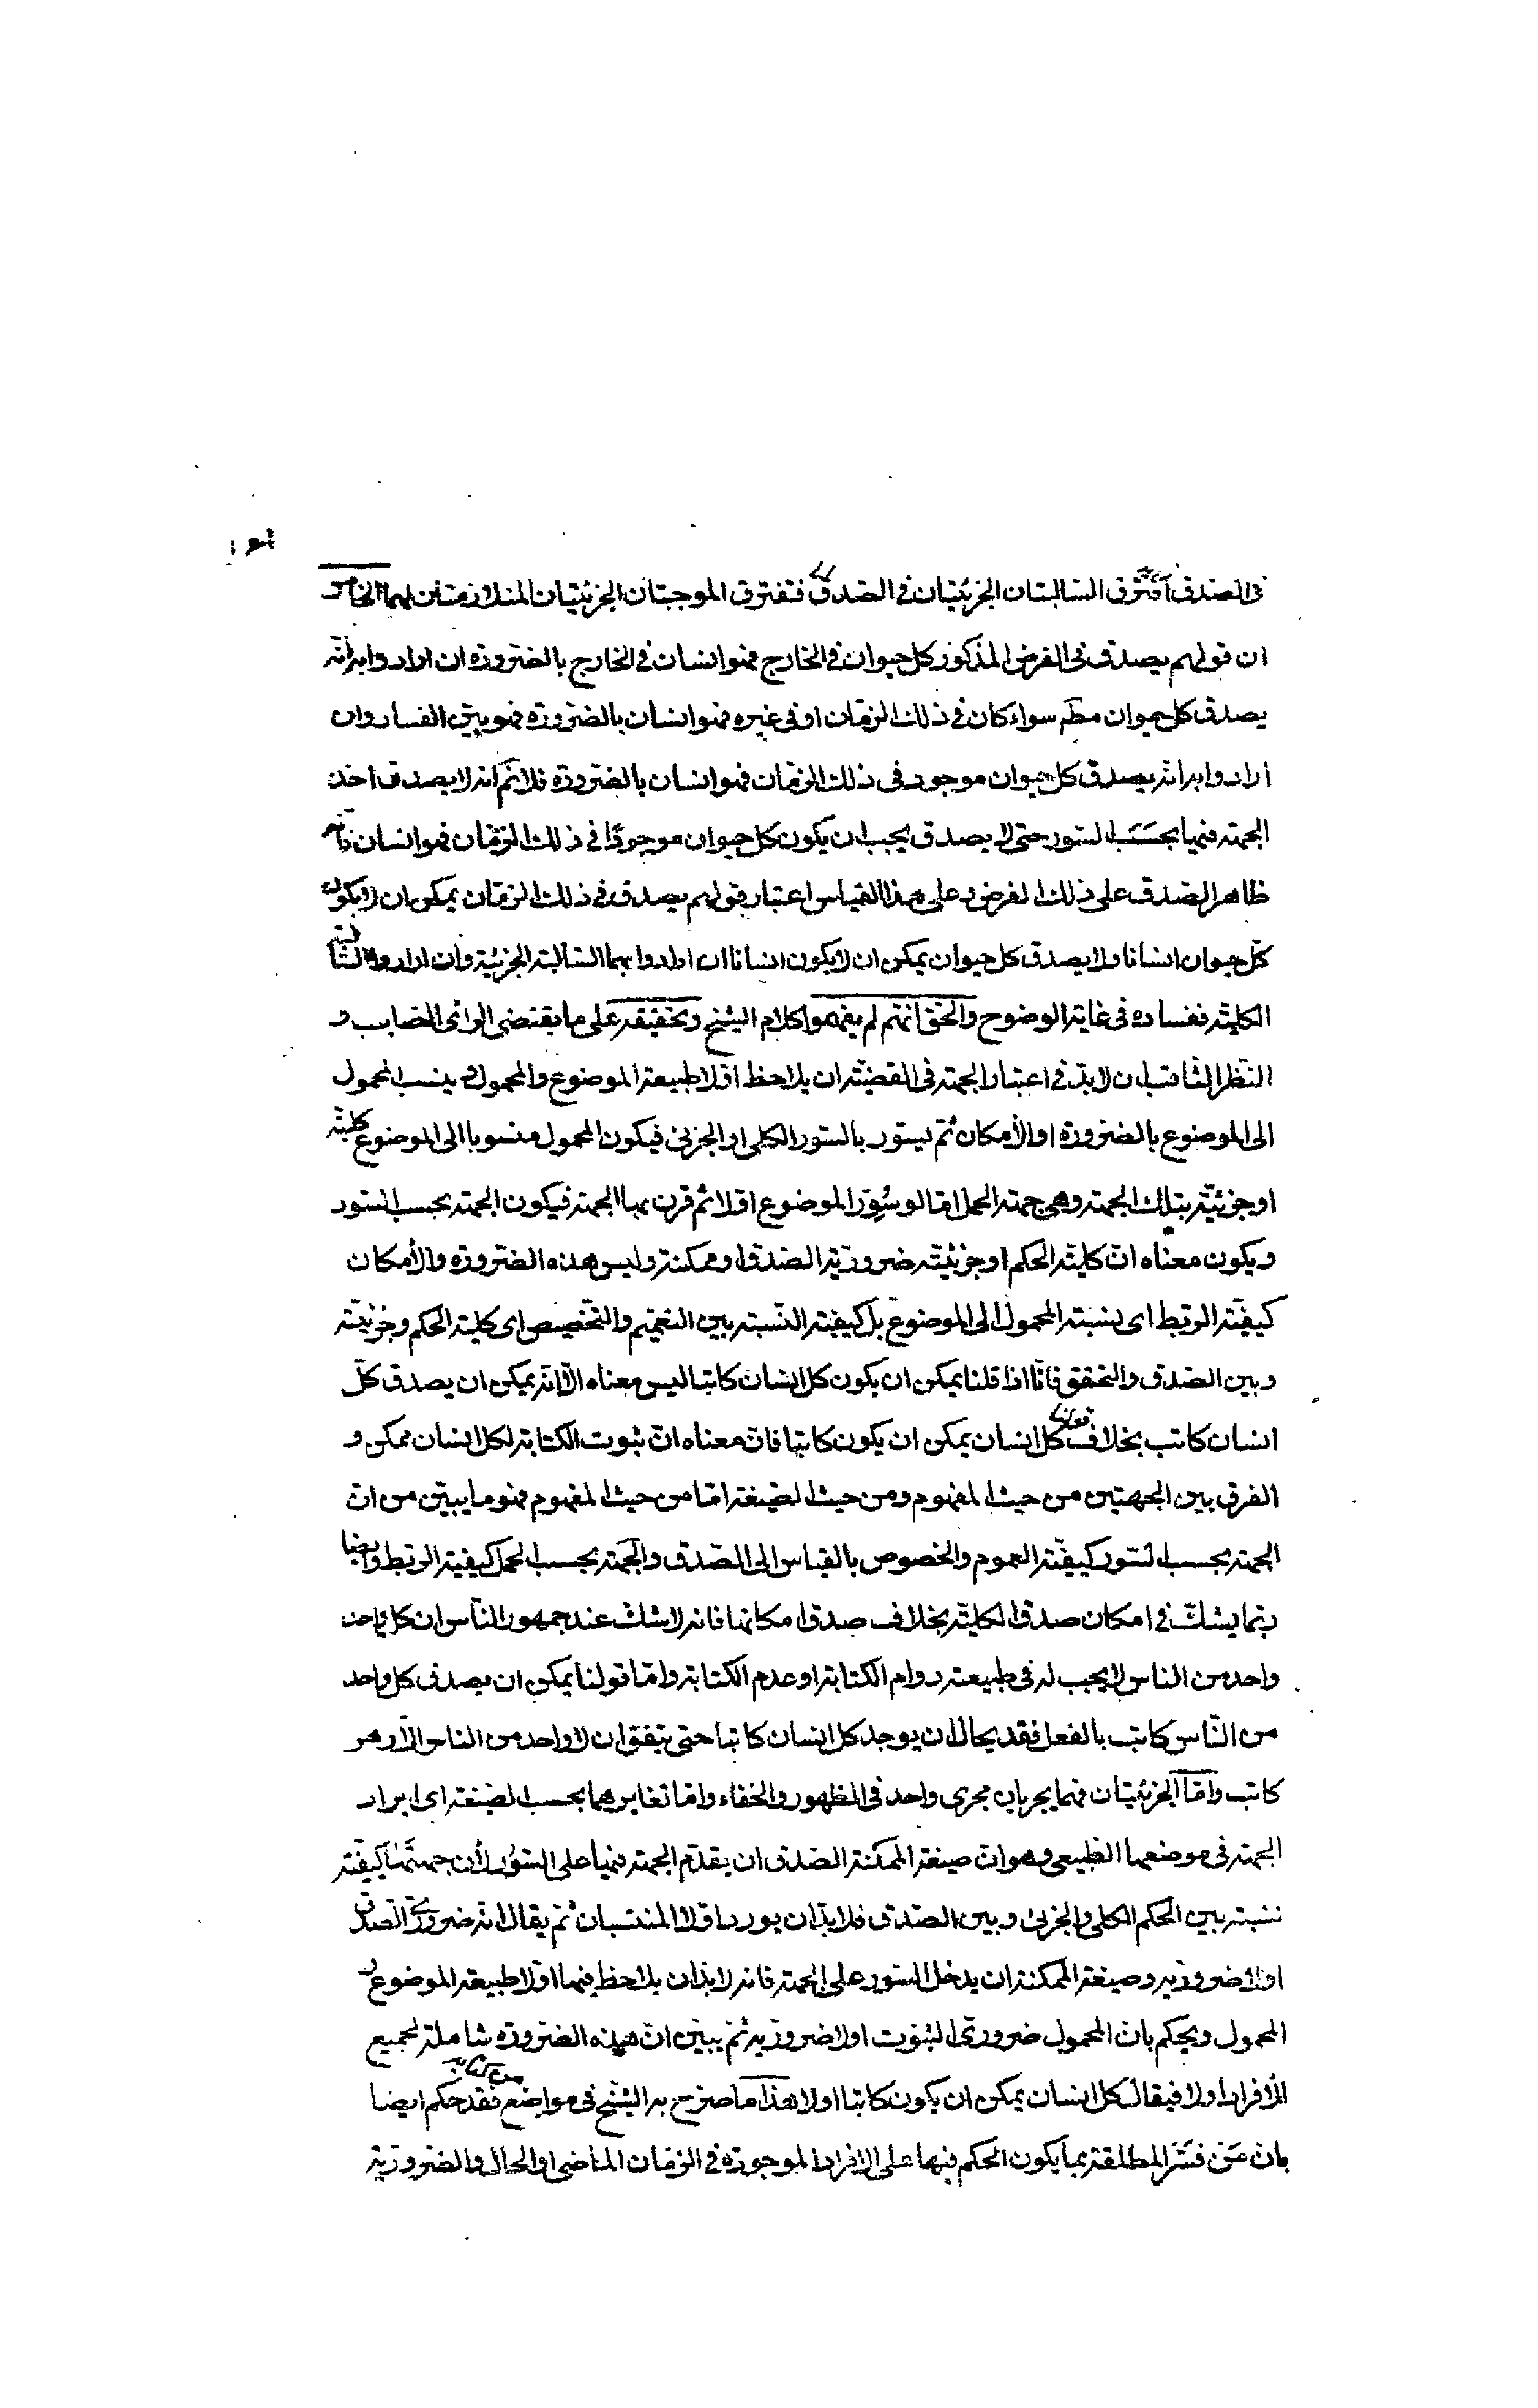 في الصدق افترق السالبتان الجزئيتان في الصدق فتفترق الموجبتان الجزئيتان المتلازمتان لهما الخامس
ان قولهم يصدق في الفرض المذكور كل حيوان في الخارج فهو انسان في الخارج بالضرورة ان ارادوا به انه
يصدق كل حيوان مطم سواء كان في ذلك الزمان او في غيره فهو انسان بالضرورة فهو بيّن الفساد وان
ارادوا به انه يصدق كل حيوان موجود في ذلك الزمان فهو انسان بالضرورة فلانم انه لا يصدق اخذ
الجهة فيها بحسب السور حتى لا يصدق يجب ان يكون كل حيوان موجودًا في ذلك الزمان فهو انسان فانه
ظاهر الصدق على ذلك الفرض وعلى هذا القياس اعتبار قولهم يصدق في ذلك الزمان يمكن ان لا يكون
كل حيوان انسانا ولا يصدق كل حيوان يمكن ان لا يكون انسانا ان ارادوا بهما السالبة الجزئية وان ارادوا السالبة
الكلية ففساده في غاية الوضوح والحق انهم لم يفهموا كلام الشيخ وتحقيقه على ما يقتضي الرأى الصايب و
النظر الثاقب ان لا بد في اعتبار الجهة في القضية ان يلاحظ اولا طبيعة الموضوع والمحمول وينسب المحمول
الى الموضوع بالضرورة او الأمكان ثم يسور بالسور الكلي او الجزئي فيكون المحمول منسوبا الى الموضوع كلية
او جزئية بتلك الجهة وهي جهة الحمل اما لو سُوّر الموضوع اولا ثم قرن بها الجهة فيكون الجهة بحسب السور
ويكون معناه ان كلية الحكم او جزئيته ضرورية الصدق او ممكنة وليس هذه الضرورة والأمكان
كيفية الربط اى نسبة المحمول الى الموضوع بل كيفية النسبة بين التعميم والتخصيص اى كلية الحكم وجزئيته
وبين الصدق والتحقق فانا اذا قلنا يمكن ان يكون كل انسان كاتبا ليس معناه الا انه يمكن ان يصدق كل
انسان كاتب بخلاف قولنا كل انسان يمكن ان يكون كاتبا فان معناه ان ثبوت الكتابة لكل انسان ممكن و
الفرق بين الجهتين من حيث المفهوم ومن حيث الصيغة اما من حيث المفهوم فهو ما يبيّن من ان
الجهة بحسب السور كيفية العموم والخصوص بالقياس الى الصدق والجهة بحسب الحمل كيفية الربط وايضا
ربما يشك في امكان صدق الكلية بخلاف صدق امكانها فانه لا شك عند جمهور الناس ان كل واحد
واحد من الناس لا يجب له في طبيعته دوام الكتابة او عدم الكتابة واما قولنا يمكن ان يصدق كل واحد
من الناس كاتب بالفعل فقد يحال ان يوجد كل انسان كاتبا حتى يتفق ان لا واحد من الناس الا وهو
كاتب واما الجزئيتان فهما يجريان مجرى واحد في الظهور والخفاء واما تغايرهما بحسب الصيغة اى ايراد
الجهة في موضعها الطبيعي وهو ان صيغة الممكنة الصدق ان يقدّم الجهة فيها على السور لأن جهتها كيفية
نسبة بين الحكم الكلي والجزئي وبين الصدق فلا بد ان يورد اولا المنتسبان ثم يقال انه ضرورى الصدق
او لا ضروريه وصيغة الممكنة ان يدخل السور على الجهة فانه لا بد ان يلاحظ فيها اولا طبيعة الموضوع و
المحمول ويحكم بان المحمول ضرورى الثبوت او لا ضروريه ثم يبيّن ان هذه الضرورة شاملة لجميع
الأفراد او لا فيقال كل انسان يمكن ان يكون كاتبا او لا هذا ما صرح به الشيخ في مواضع من كتابه فقد حكم ايضا
بان من فسّر المطلقة بما يكون الحكم فيها على الافراد الموجودة في الزمان الماضي او الحال والضرورية